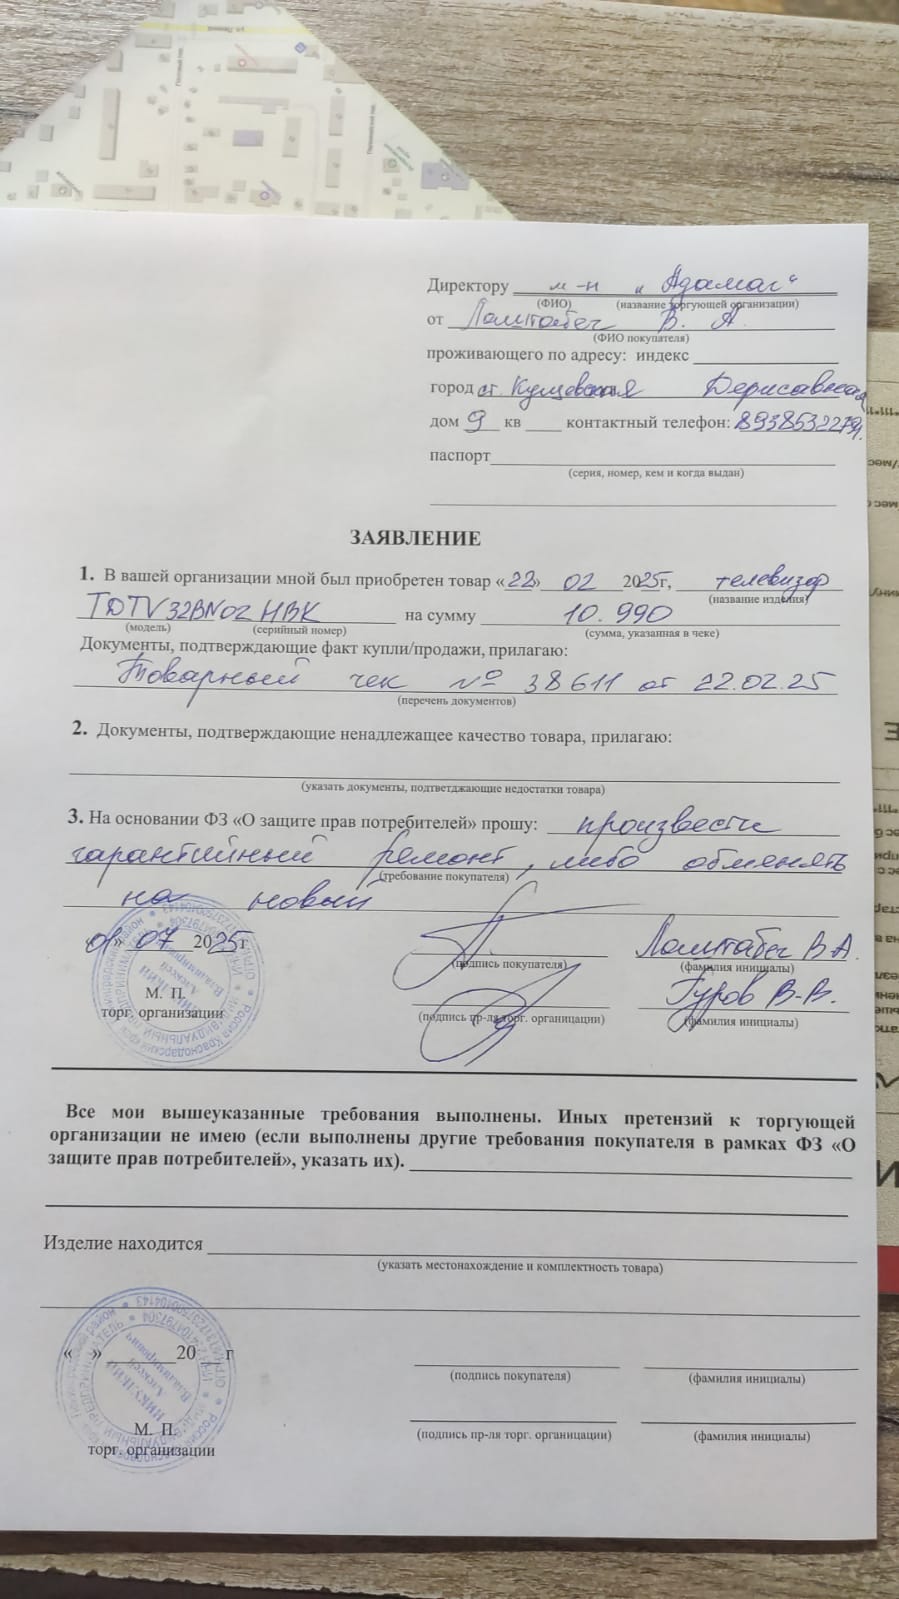 Директору м-н „Адамаг“
(ФИО) (название торгующей организации)
от Ламтабег В. А.
(ФИО покупателя)
проживающего по адресу: индекс
город ст. Кущевская
дом 9 кв контактный телефон:
паспорт
(серия, номер, кем и когда выдан)
ЗАЯВЛЕНИЕ
1. В вашей организации мной был приобретен товар «22» 02 2025г, телевизор
(название изделия)
TDTV32BN02HBK на сумму 10.990
(модель) (серийный номер) (сумма, указанная в чеке)
Документы, подтверждающие факт купли/продажи, прилагаю:
Товарный чек № 38611 от 22.02.25
(перечень документов)
2. Документы, подтверждающие ненадлежащее качество товара, прилагаю:
(указать документы, подтветджающие недостатки товара)
3. На основании ФЗ «О защите прав потребителей» прошу: произвести
гарантийный ремонт, либо обменять
(требование покупателя)
на новый
«01» 07 2025г Ламтабег В А.
(подпись покупателя) (фамилия инициалы)
М. П. Гуров В.В.
торг. организации (подпись пр-ля торг. органицации) (фамилия инициалы)
Все мои вышеуказанные требования выполнены. Иных претензий к торгующей
организации не имею (если выполнены другие требования покупателя в рамках ФЗ «О
защите прав потребителей», указать их).
Изделие находится
(указать местонахождение и комплектность товара)
« » 20 г
(подпись покупателя) (фамилия инициалы)
М. П.
торг. организации (подпись пр-ля торг. органицации) (фамилия инициалы)